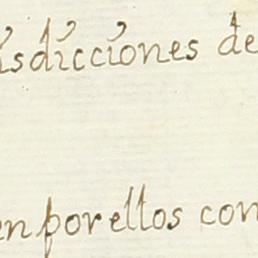 isdicciones de
en por ellos con